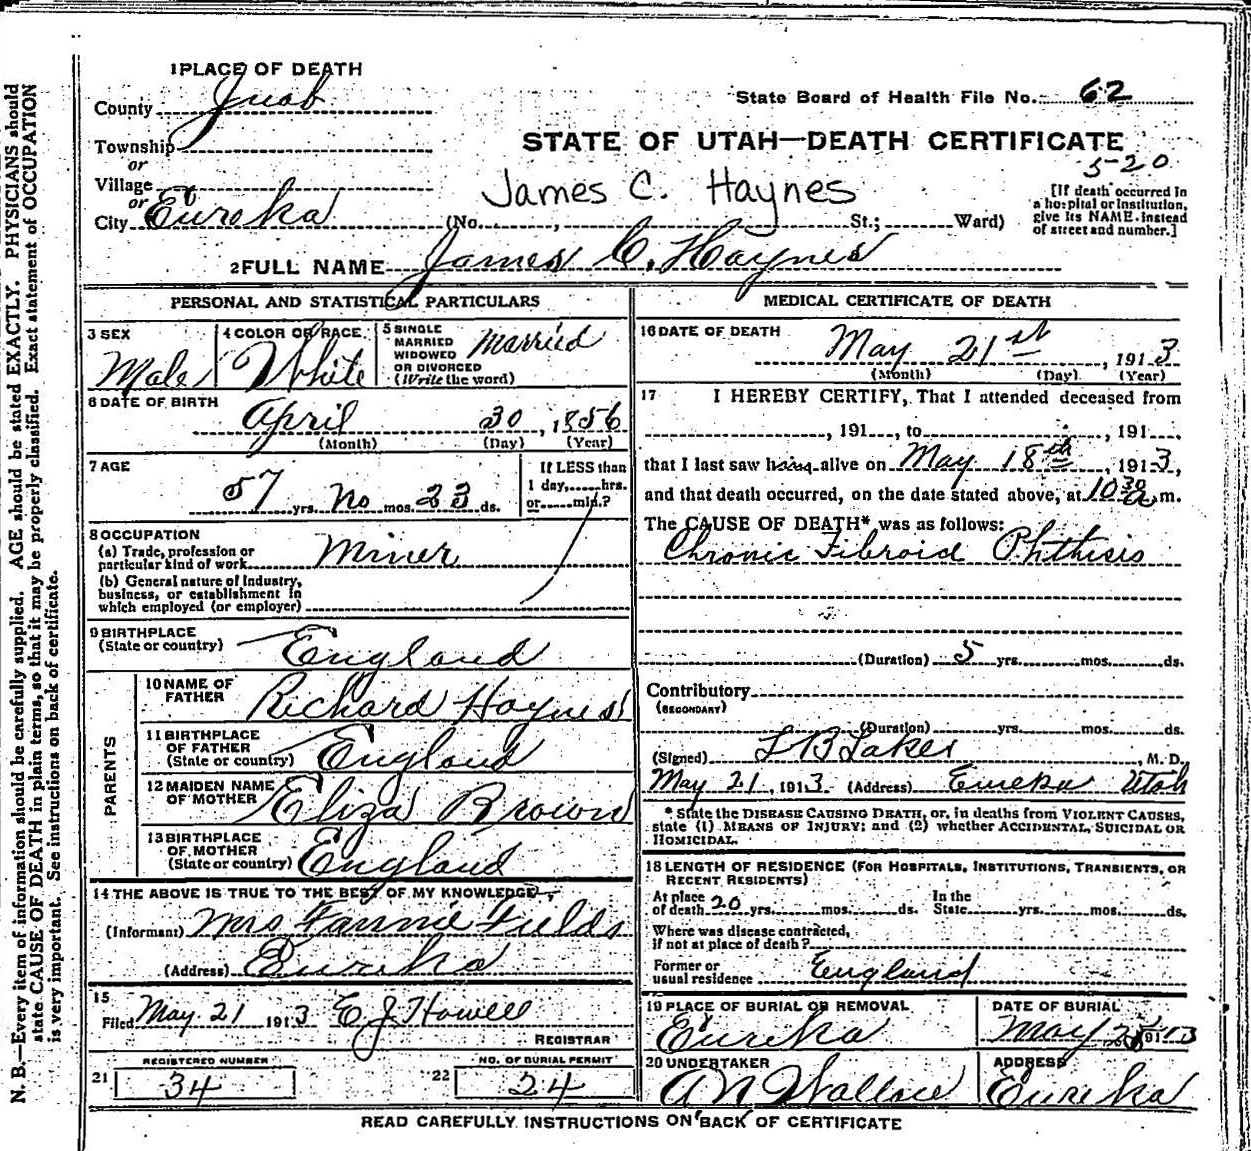 1 PLACE OF DEATH
County Juab
State Board of Health File No. 62
STATE OF UTAH—DEATH CERTIFICATE
Township
or
Village
or
City Eureka
5-20
James C. Haynes
(No. , St.; Ward)
[If death occurred in
a hospital or institution,
give its NAME instead
of street and number.]
2 FULL NAME James C. Haynes
PERSONAL AND STATISTICAL PARTICULARS
3 SEX
Male
4 COLOR OR RACE
White
5 SINGLE
MARRIED
WIDOWED
OR DIVORCED
(Write the word)
Married
6 DATE OF BIRTH
April 30, 1856
(Month) (Day) (Year)
7 AGE
57 yrs. no mos. 23 ds.
If LESS than
1 day, hrs.
or min.?
8 OCCUPATION
(a) Trade, profession or
particular kind of work Miner
(b) General nature of Industry,
business, or establishment in
which employed (or employer)
9 BIRTHPLACE
(State or country) England
PARENTS
10 NAME OF
FATHER Richard Haynes
11 BIRTHPLACE
OF FATHER
(State or country) England
12 MAIDEN NAME
OF MOTHER Eliza Brown
13 BIRTHPLACE
OF MOTHER
(State or country) England
14 THE ABOVE IS TRUE TO THE BEST OF MY KNOWLEDGE
(Informant) Mrs Fannie Fields
(Address) Eureka
15
Filed May 21 1913 E J Howell
REGISTRAR
REGISTERED NUMBER
21 34
NO. OF BURIAL PERMIT
22 24
MEDICAL CERTIFICATE OF DEATH
16 DATE OF DEATH
May 21st, 1913
(Month) (Day) (Year)
17 I HEREBY CERTIFY, That I attended deceased from
, 191 , to , 191 ,
that I last saw him alive on May 18th, 1913,
and that death occurred, on the date stated above, at 10 30 a m.
The CAUSE OF DEATH* was as follows:
Chronic Fibroid Phthisis
(Duration) 5 yrs. mos. ds.
Contributory
(SECONDARY)
(Duration) yrs. mos. ds.
(Signed) L B Laker, M. D.
May 21, 1913 (Address) Eureka Utah
* State the DISEASE CAUSING DEATH, or, in deaths from VIOLENT CAUSES,
state (1) MEANS OF INJURY; and (2) whether ACCIDENTAL, SUICIDAL OR
HOMICIDAL.
18 LENGTH OF RESIDENCE (FOR HOSPITALS, INSTITUTIONS, TRANSIENTS, OR
RECENT RESIDENTS)
At place
of death 20 yrs. mos. ds.
In the
State yrs. mos. ds.
Where was disease contracted,
if not at place of death?
Former or
usual residence England
19 PLACE OF BURIAL OR REMOVAL
Eureka
DATE OF BURIAL
May 1913
20 UNDERTAKER
A N Wallace
ADDRESS
Eureka
READ CAREFULLY INSTRUCTIONS ON BACK OF CERTIFICATE
N. B.—Every item of information should be carefully supplied. AGE should be stated EXACTLY. PHYSICIANS should
state CAUSE OF DEATH in plain terms, so that it may be properly classified. Exact statement of OCCUPATION
is very important. See instructions on back of certificate.